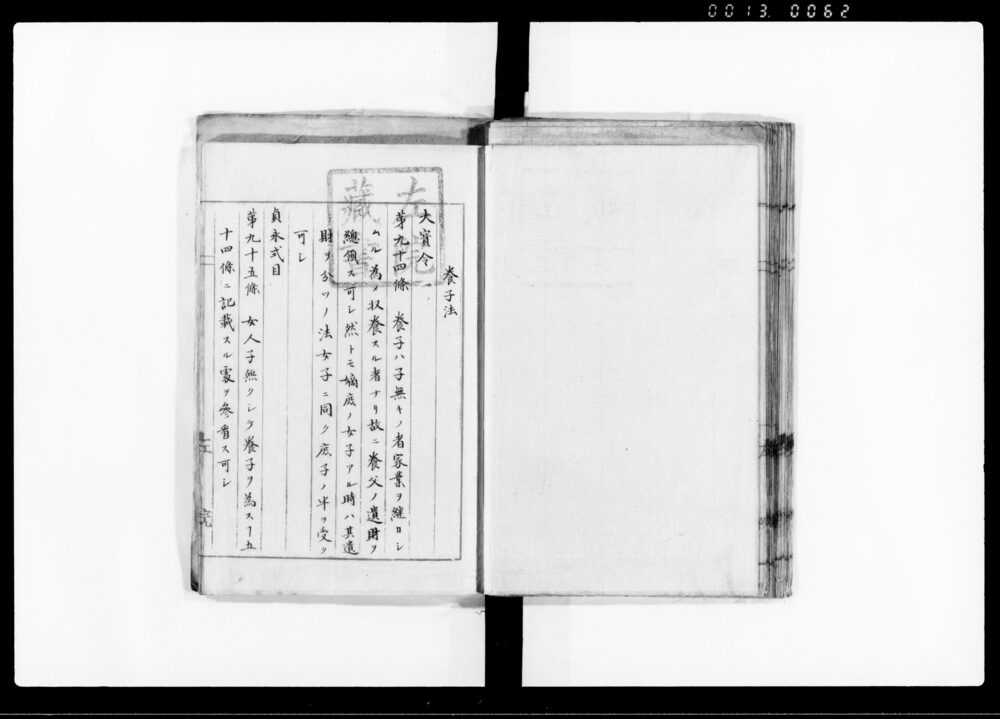 0013. 0062
左院
藏書
養子法
大寶令
第九十四條 養子ハ子無キノ者家業ヲ継ヨシ
ムル為メ収養スル者ナリ故ニ養父ノ遺財ヲ
總領ス可シ然トモ嫡庶ノ女子アル時ハ其遺
財ヲ分ツノ法女子ニ同ク庶子ノ半ヲ受ク
可シ
貞永式目
第九十五條 女人子無クシテ養子ヲ為スヿ五
十四條ニ記載スル處ヲ參看ス可シ
左院